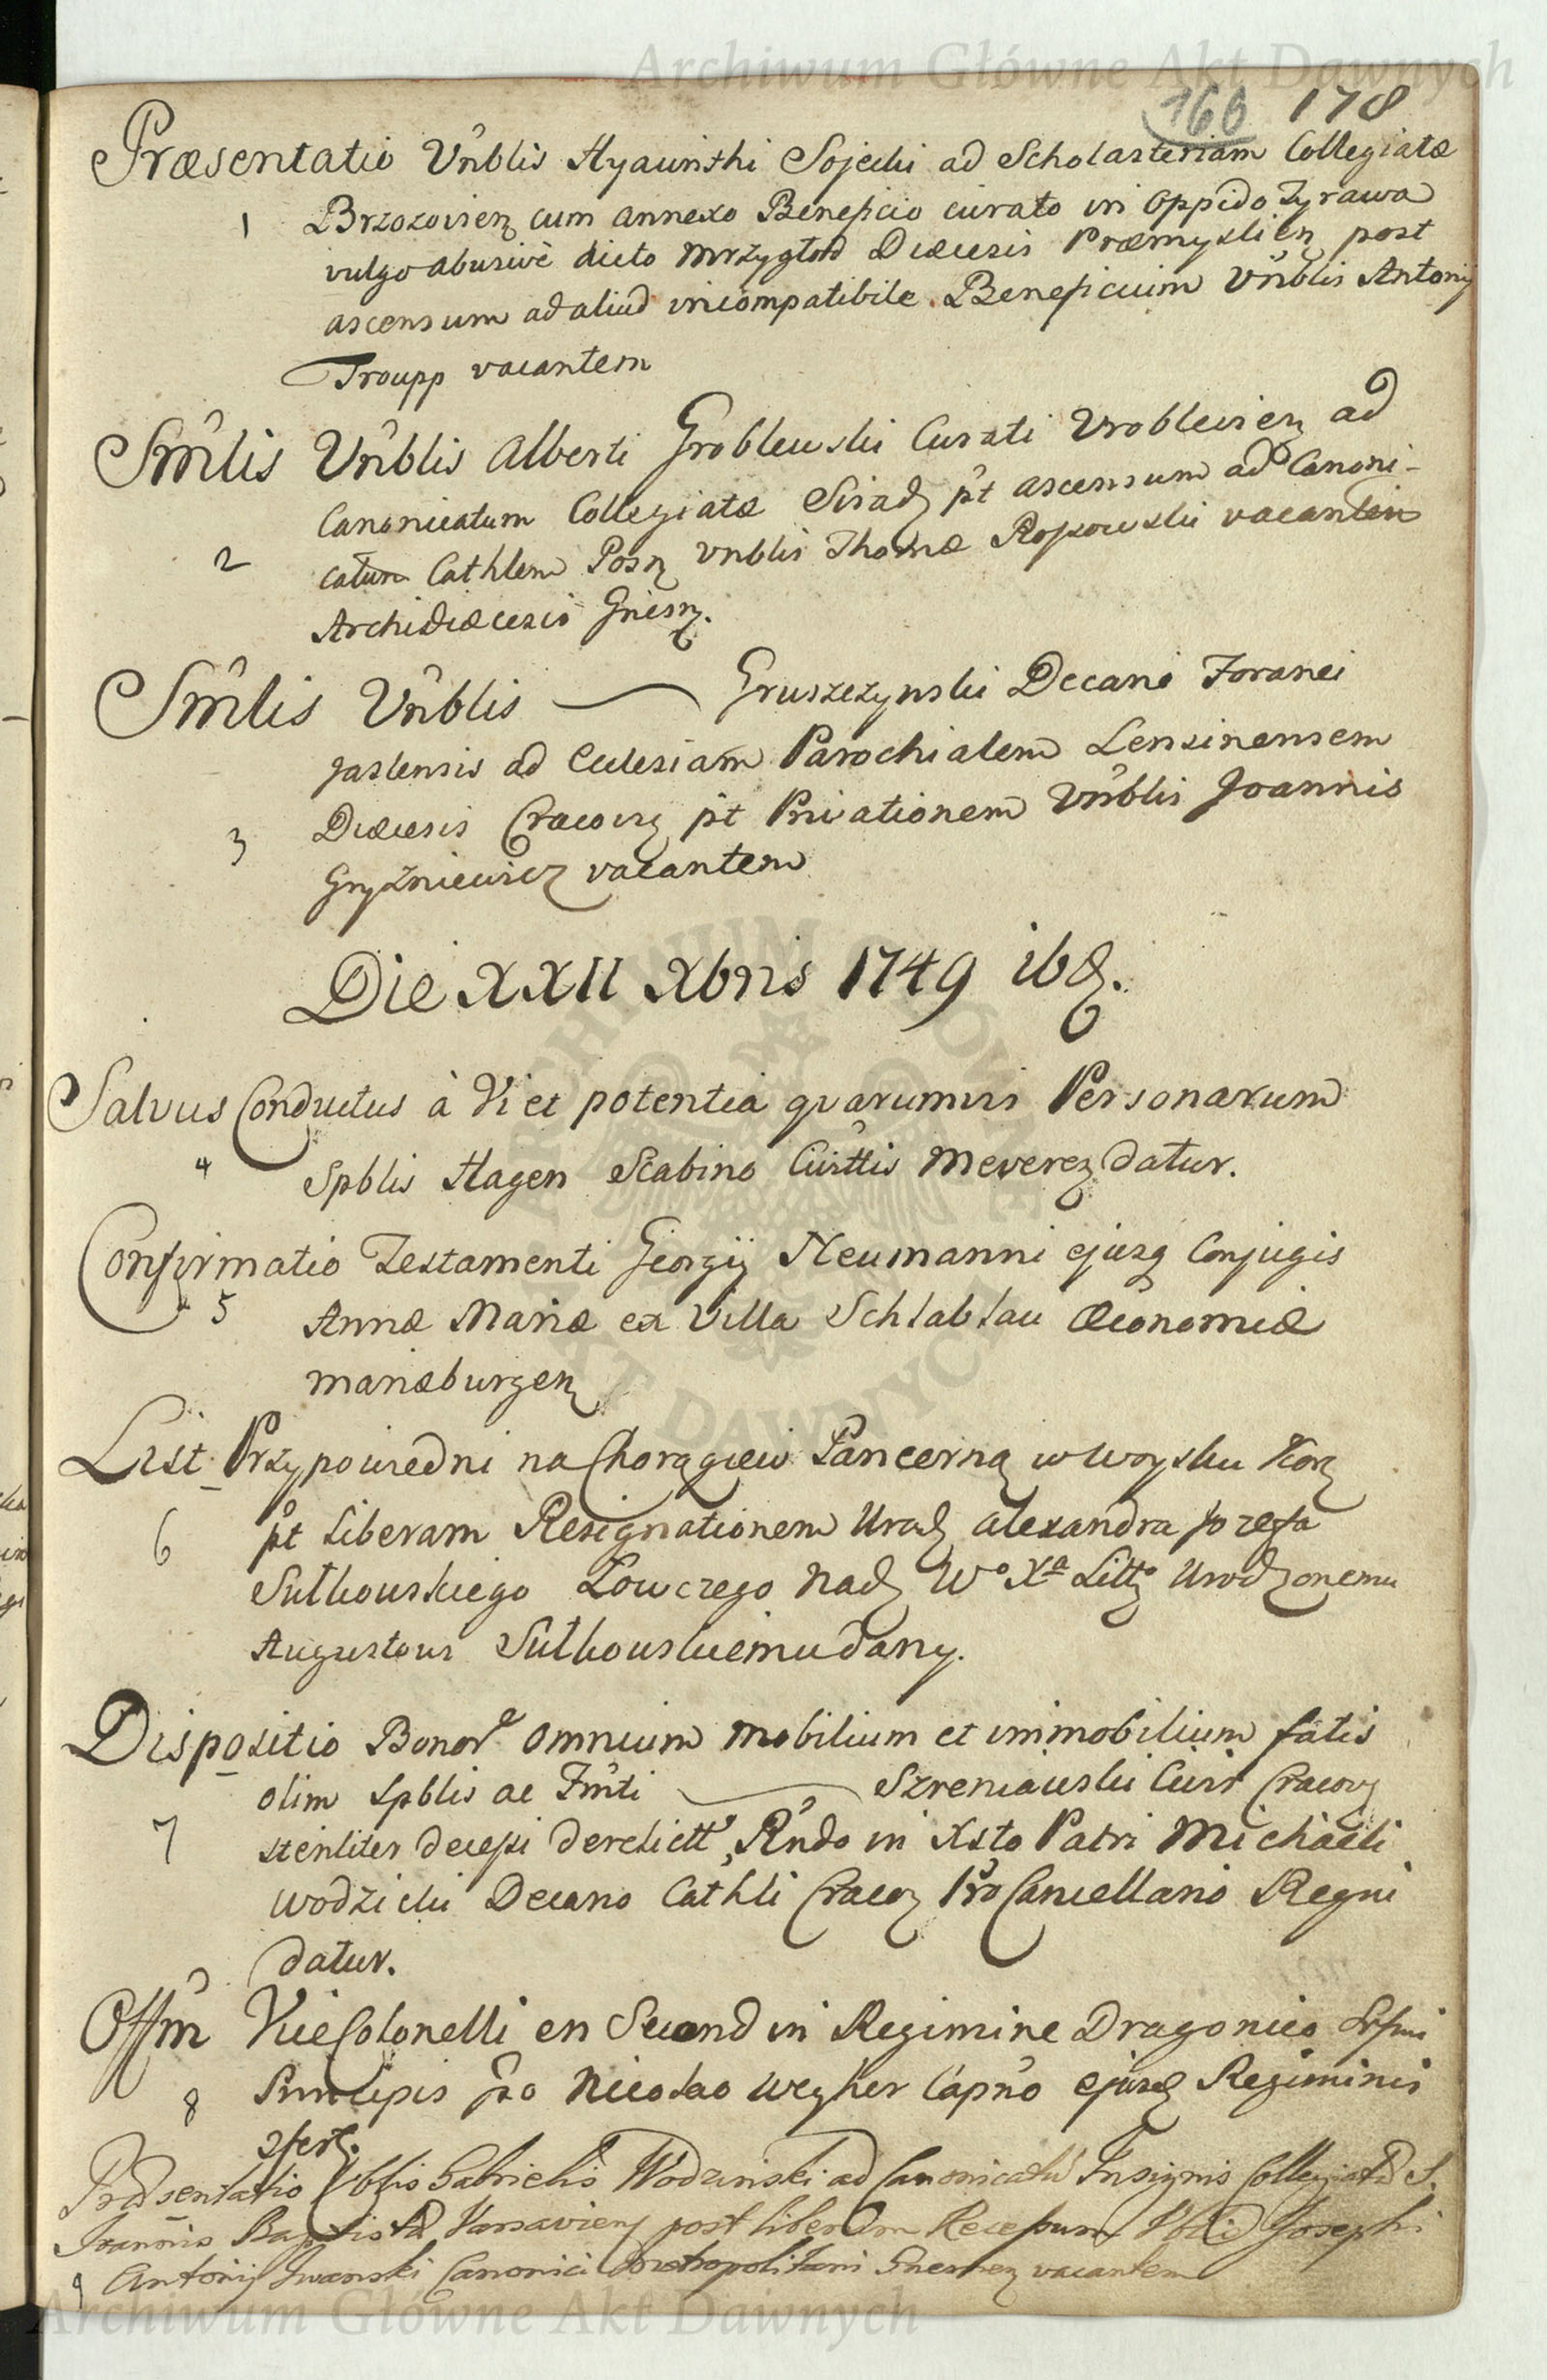 Archiwum Główne Akt Dawnych
166 178
Præsentatio Vnblis Hyacinthi Sojecki ad Scholasteriam Collegiatæ
1 Brzozovien cum annexo Beneficio curato in oppido Tyrawa
vulgo abusivè dicto Mrzygłod Diæcesis Præmyslien post
ascensum ad aliud incompatibile Beneficium Vnblis Antonij
Troupp vacantem
Smlis Vnblis Alberti Groblewski Curati Wroblewien ad
Canonicatum Collegiatæ Sirad pt ascensum ad Canoni-
2 catum Cathlem Posn Vnblis Thomæ vacantem
Archidiæcesis Gnesn.
Smlis Vnblis — Gruszczynski Decani Foranei
Jaslensis ad Ecclesiam Parochialem Lenzinensem
3 Diæcesis Cracovien pt Privationem Vnblis Joannis
Gryzniewicz vacantem
Die XXII Xbris 1749 ibd.
Salvus Conductus à Vi et potentia quarumvis Personarum
4 Spblis Hagen Scabino Cuittis Meveren datur.
Confirmatio Testamenti Georgij Neumanni ejusq Conjugis
5 Annæ Mariæ ex Villa Schlablau Œconomiæ
Mariæburgen
List Przypowiedni na Chorągiew Pancerną w Woysku Kor
6 pt Liberam Resignationem Urod Alexandra Jozefa
Sułkowskiego Łowczego Nad Wo Xa Litt Urodzonemu
Augustowi Sułkowskiemu dany.
Dispositio Bonor omnium mobilium et immobilium fatis
olim Spblis ac Fmti — Szreniawski Civis Cracov
7 steriliter decessi derelictt, Rndo in Xsto Patri Michaeli
Wodzicki Decano Cathli Cracov ProCancellario Regni
datur.
Offm ViceColonelli en Second in Regimine Dragonico Srsmi
8 Principis pro Nicolao Weyher Capno ejusd Regiminis
sfert.
Præsentatio Vblis Gabrielis Wodzinski ad Canonicatu Insignis Collegiatæ S.
Joannis Baptistæ Varsavien post liberam Recessum Vblis Josephi
9 Antonij Iwanski Canonici Metropolitani Gnesnen vacantem
Archiwum Główne Akt Dawnych